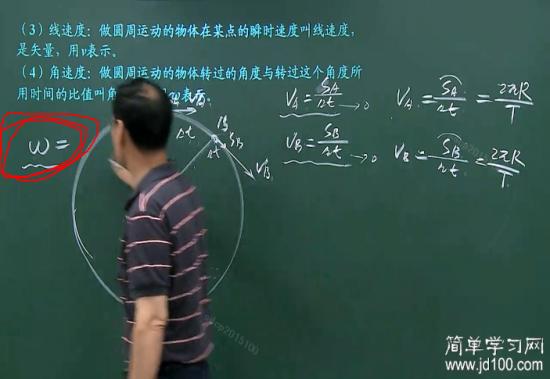 （3）线速度：做圆周运动的物体在某点的瞬时速度叫线速度，
是矢量，用v表示。
（4）角速度：做圆周运动的物体转过的角度与转过这个角度所
用时间的比值叫角 ω表示
ω=
V_A
Δt
B
S_B
Δt
V_B
V_A = S_A/Δt →0
V_B = S_B/Δt →0
V_A = S_A/Δt = 2πR/T
V_B = S_B/Δt = 2πR/T
简单学习网
www.jd100.com